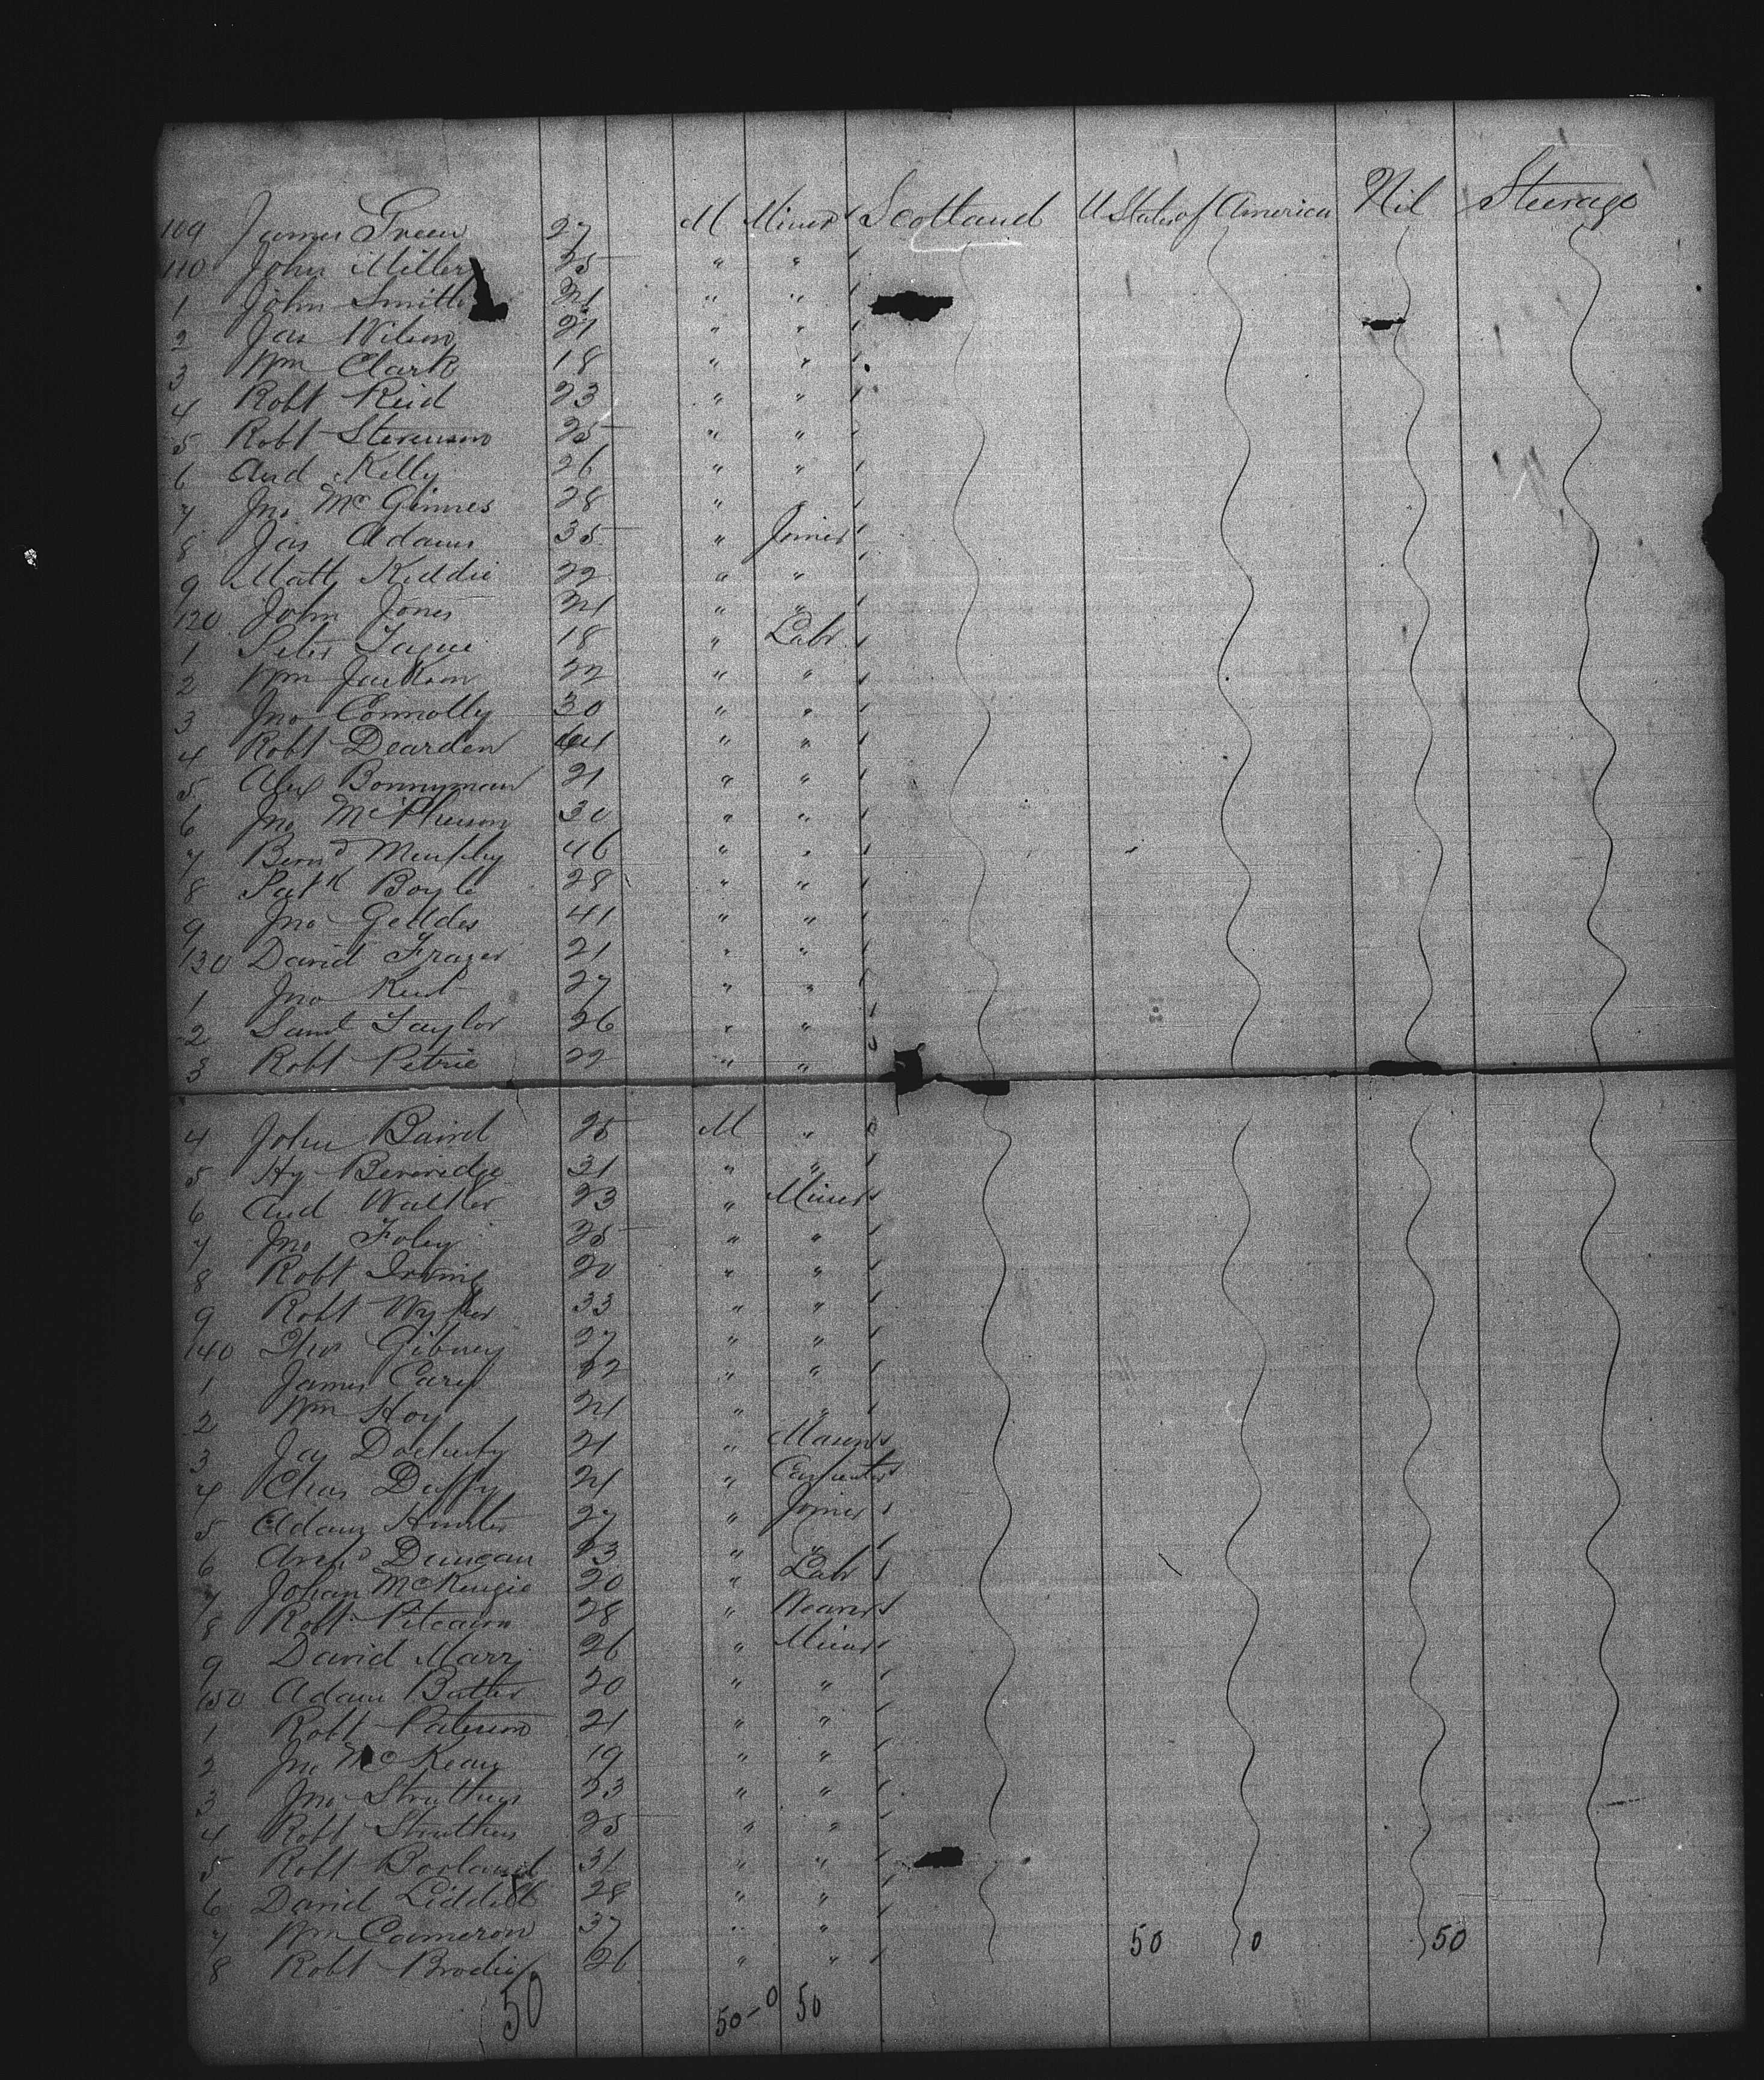 109 James Green 27 M Miner Scotland U States of America Nil Steerage
110 John Miller 25 " "
1 John Smith 21 " "
2 Jas Wilson 21 " "
3 Wm Clark 18 " "
4 Robt Reid 23 " "
5 Robt Stevenson 25 " "
6 And Kelly 26 " "
7 Jno McGinnes 28 " "
8 Jas Adams 35 " Joiner
9 Matt Kiddie 22 " "
120 John Jones 21 " "
1 Peter Tague 18 " Labr
2 Wm Jackson 22 " "
3 Jno Connolly 30 " "
4 Robt Dearden 44 " "
5 Alex Bonnyman 21 " "
6 Jno McPherson 30 " "
7 Bernd Murphy 46 " "
8 Patk Boyle 28 " "
9 Jno Geddes 41 " "
130 David Frazer 21 " "
1 Jno 27 " "
2 Saml Taylor 26 " "
3 Robt Petrie 22 " "
4 John Baird 25 M "
5 Hy Beveridge 31 " "
6 And Walker 23 " Miner
7 Jno Foley 25 " "
8 Robt Irving 20 " "
9 Robt 33 " "
140 Thos Gibney 27 " "
1 James Carey 22 " "
2 Wm Hoy 21 " "
3 Jas Docherty 21 " Mason
4 Chas Duffy 21 " Carpenter
5 Adam Hunter 27 " Joiner
6 Archd Duncan 23 " "
7 Johan McKenzie 20 " Labr
8 Robt Pitcairn 28 " Weaver
9 David Marr 26 " Miner
150 Adam Butter 20 " "
1 Robt Paterson 21 " "
2 Jno McKean 19 " "
3 Jno Struthers 23 " "
4 Robt Struthers 25 " "
5 Robt Borland 31 " "
6 David Liddell 28 " "
7 Wm Cameron 37 " " 50 0 50
8 Robt Brodie 26 " "
50 50-0 50